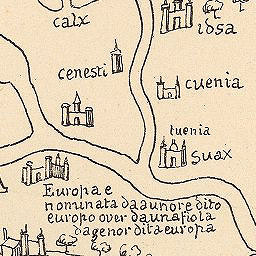 calx
idsa
cenesti
cuenia
tuenia
suax
Europa e
nominata da aunore dito
europo over da una fiola
dagenor dita europa